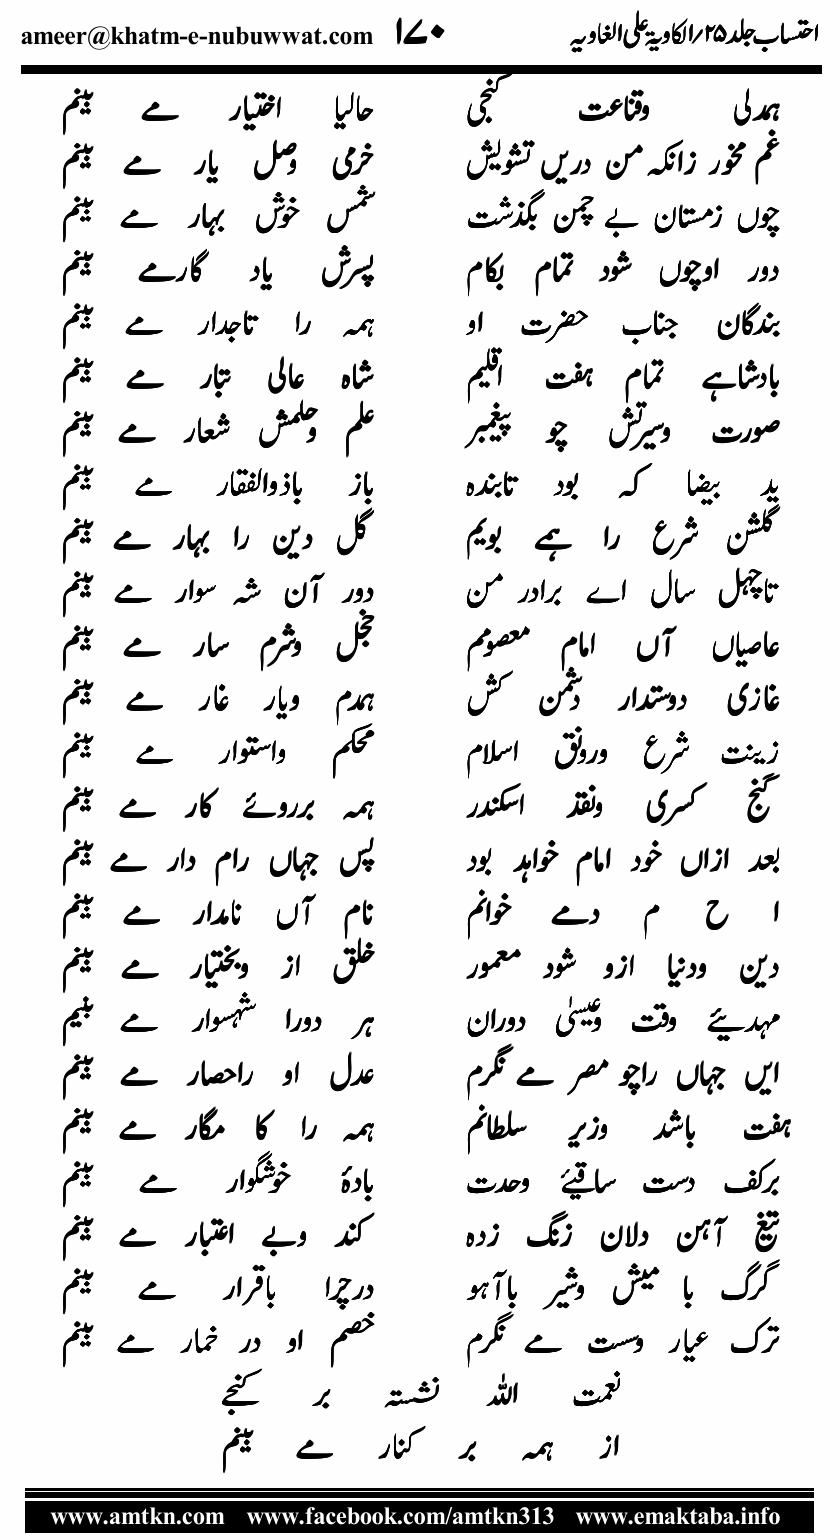 احتساب جلد ۲۵؍الکاویۃ علی الغاویہ ۱۷۰ ameer@khatm-e-nubuwwat.com
ہمدلی وقناعت کنجی حالیا اختیار مے بینم
غم مخور زانکہ من دریں تشویش خرمی وصل یار مے بینم
چوں زمستان بے چمن بگذشت شمس خوش بہار مے بینم
دور اوچوں شود تمام بکام پسرش یاد گارمے بینم
بندگان جناب حضرت او ہمہ را تاجدار مے بینم
بادشاہے تمام ہفت اقلیم شاہ عالی تبار مے بینم
صورت وسیرتش چو پیغمبر علم وحلمش شعار مے بینم
ید بیضا کہ بود تابندہ باز باذوالفقار مے بینم
گلشن شرع را ہمے بویم گل دین را بہار مے بینم
تاچہل سال اے برادر من دور آن شہ سوار مے بینم
عاصیاں آں امام معصومم خجل وشرم سار مے بینم
غازی دوستدار دشمن کش ہمدم ویار غار مے بینم
زینت شرع ورونق اسلام محکم واستوار مے بینم
گنج کسری ونقد اسکندر ہمہ برروئے کار مے بینم
بعد ازاں خود امام خواہد بود پس جہاں رام دار مے بینم
ا ح م دمے خوانم نام آں نامدار مے بینم
دین ودنیا ازو شود معمور خلق از وبختیار مے بینم
مہدیٔے وقت وعیسیٰ دوران ہر دورا شہسوار مے بینم
ایں جہاں راچو مصر مے نگرم عدل او راحصار مے بینم
ہفت باشد وزیر سلطانم ہمہ را کا مگار مے بینم
برکف دست ساقیٔے وحدت بادۂ خوشگوار مے بینم
تیغ آہن دلان زنگ زدہ کند وبے اعتبار مے بینم
گرگ با میش وشیر باآہو درچرا باقرار مے بینم
ترک عیار وست مے نگرم خصم او در خمار مے بینم
نعمت اللہ نشستہ بر کنجے
از ہمہ بر کنار مے بینم
www.amtkn.com www.facebook.com/amtkn313 www.emaktaba.info